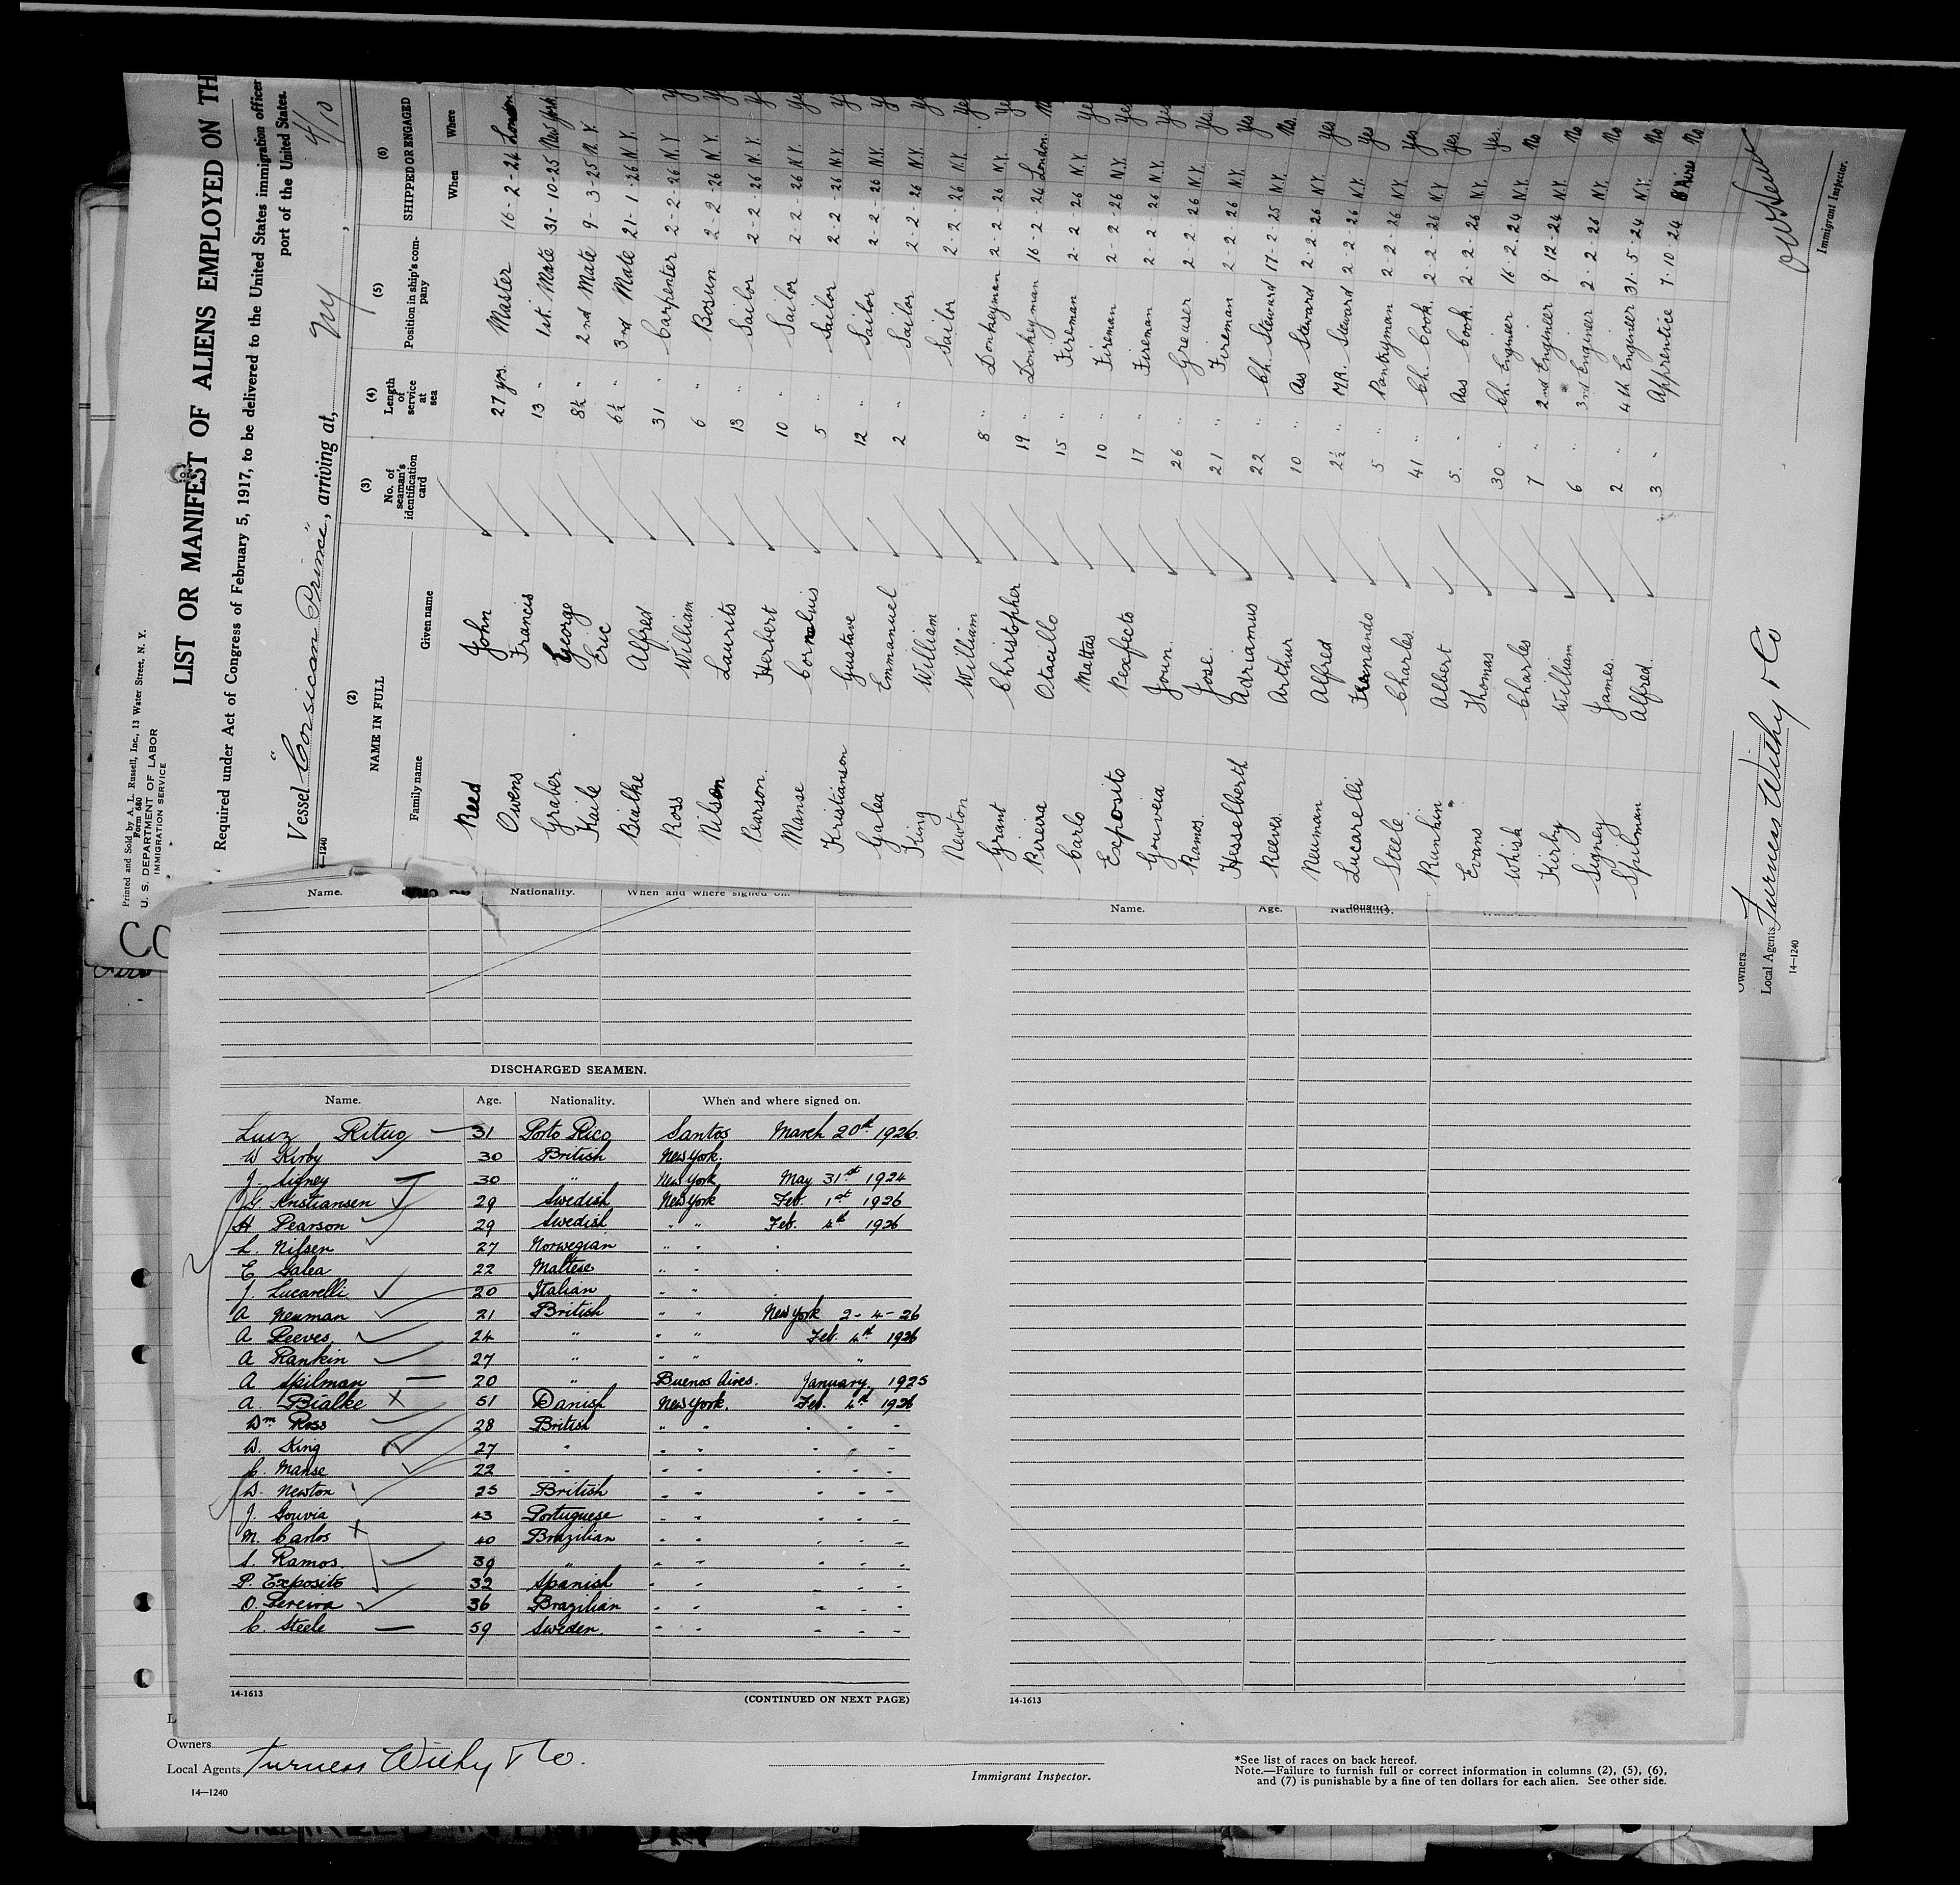 Printed and Sold by A. L. Russell, Inc., 13 Water Street, N. Y.
Form 680
U. S. DEPARTMENT OF LABOR
IMMIGRATION SERVICE
LIST OR MANIFEST OF ALIENS EMPLOYED ON TH
Required under Act of Congress of February 5, 1917, to be delivered to the United States immigration officer
port of the United States.
Vessel "Corsican Prince", arriving at, NY, 4/10
14-1240
(2) (3) (4) (5) (6)
NAME IN FULL No. of seaman's identification card Length of service at sea Position in ship's company SHIPPED OR ENGAGED
Family name Given name When Where
Reed John 27 yrs. Master 16-2-24 London
Owens Francis 13 " 1st. Mate 31-10-25 New York
Graber George 8½ " 2nd Mate 9-3-25 N.Y.
Kaile Eric 6½ " 3rd Mate 21-1-26 N.Y.
Bialke Alfred 31 " Carpenter 2-2-26 N.Y
Ross William 6 " Bosun 2-2-26 N.Y.
Nilson Laurits 13 " Sailor 2-2-26 N.Y.
Pearson. Herbert 10 " Sailor 2-2-26 N.Y.
Manse Cornelius 5 " Sailor 2-2-26 N.Y.
Kristianson Gustave 12 " Sailor 2-2-26 N.Y.
Galea Emmanuel 2 " Sailor 2-2-26 N.Y.
King William Sailor 2-2-26 N.Y.
Newton William 8 " Donkeyman 2-2-26 N.Y.
Grant Christopher 19 " Donkeyman 16-2-24 London.
Pireira Otacillo 15 " Fireman 2-2-26 N.Y. Yes
Carlo Mattas 10 " Fireman 2-2-26 N.Y. Yes
Exposito Pexfecto 17 " Fireman 2-2-26 N.Y. Yes
Gouveia Joun. 26 " Greaser 2-2-26 N.Y. Yes.
Ramos. Jose. 21 " Fireman 2-2-26 N.Y. Yes
Hesselberth Adriamus 22 " Ch. Steward 17-2-25 N.Y. No.
Reeves. Arthur 10 " Ass Steward 2-2-26 N.Y. Yes
Neuman Alfred 2½ " M.R. Steward 2-2-26 N.Y. Yes
Lucarelli Fernando 5 " Pantryman 2-2-26 N.Y Yes.
Steele Charles. 41 " Ch. Cook. 2-2-26 N.Y Yes.
Runkin Albert 5. " Ass Cook. 2-2-26 N.Y. Yes.
Evans Thomas 30 " Ch. Engineer 16-2-24 N.Y. No
Whisk Charles 7 " 2nd Engineer 9-12-24 N.Y. No
Kirby William 6 " 3rd Engineer 2-2-26 N.Y. No
Signey James. 2 " 4th Engineer 31-5-24 N.Y. No
Spilman Alfred. 3 " Apprentice 7-10-24 B Aires No.
Owners
Local Agents Furness Withy & Co
14—1240
Immigrant Inspector.
Name. Nationality. When and where signed on.
DISCHARGED SEAMEN.
Name. Age. Nationality. When and where signed on.
Luiz Rituo 31 Porto Rico Santos March 20th 1926.
W Kirby 30 British New York.
J. Signey 30 " New York May 31st 1924
G Kristiansen 29 Swedish New York Feb. 1st 1926
H Pearson 29 Swedish " " Feb. 4th 1926
L. Nilsen 27 Norwegian " "
E Galea 22 Maltese " "
J. Lucarelli 20 Italian " "
A Neuman 21 British " " New York 2-4-26
A Reeves. 24 " " " Feb. 4th 1926
A Rankin 27 " " " "
A Spilman 20 " Buenos Aires. January, 1925
A. Bialke 51 Danish New York. Feb. 4th 1926
Wm Ross 28 British " " " " "
W. King 27 " " " " " "
C. Manse 22 " " " " " "
W. Newton 25 British " " " " "
J. Gouvia 43 Portuguese " " " " "
M. Carlos 40 Brazilian " " " " "
S. Ramos. 39 " " " " " "
P. Exposito 32 Spanish " " " " "
O. Pereira 36 Brazilian " " " " "
C. Steele 59 Sweden. " " " " "
14-1613
(CONTINUED ON NEXT PAGE)
Name. Age. Nationality.
14-1613
Owners
Local Agents Furness Withy & Co.
14—1240
Immigrant Inspector.
*See list of races on back hereof.
Note.—Failure to furnish full or correct information in columns (2), (5), (6),
and (7) is punishable by a fine of ten dollars for each alien. See other side.